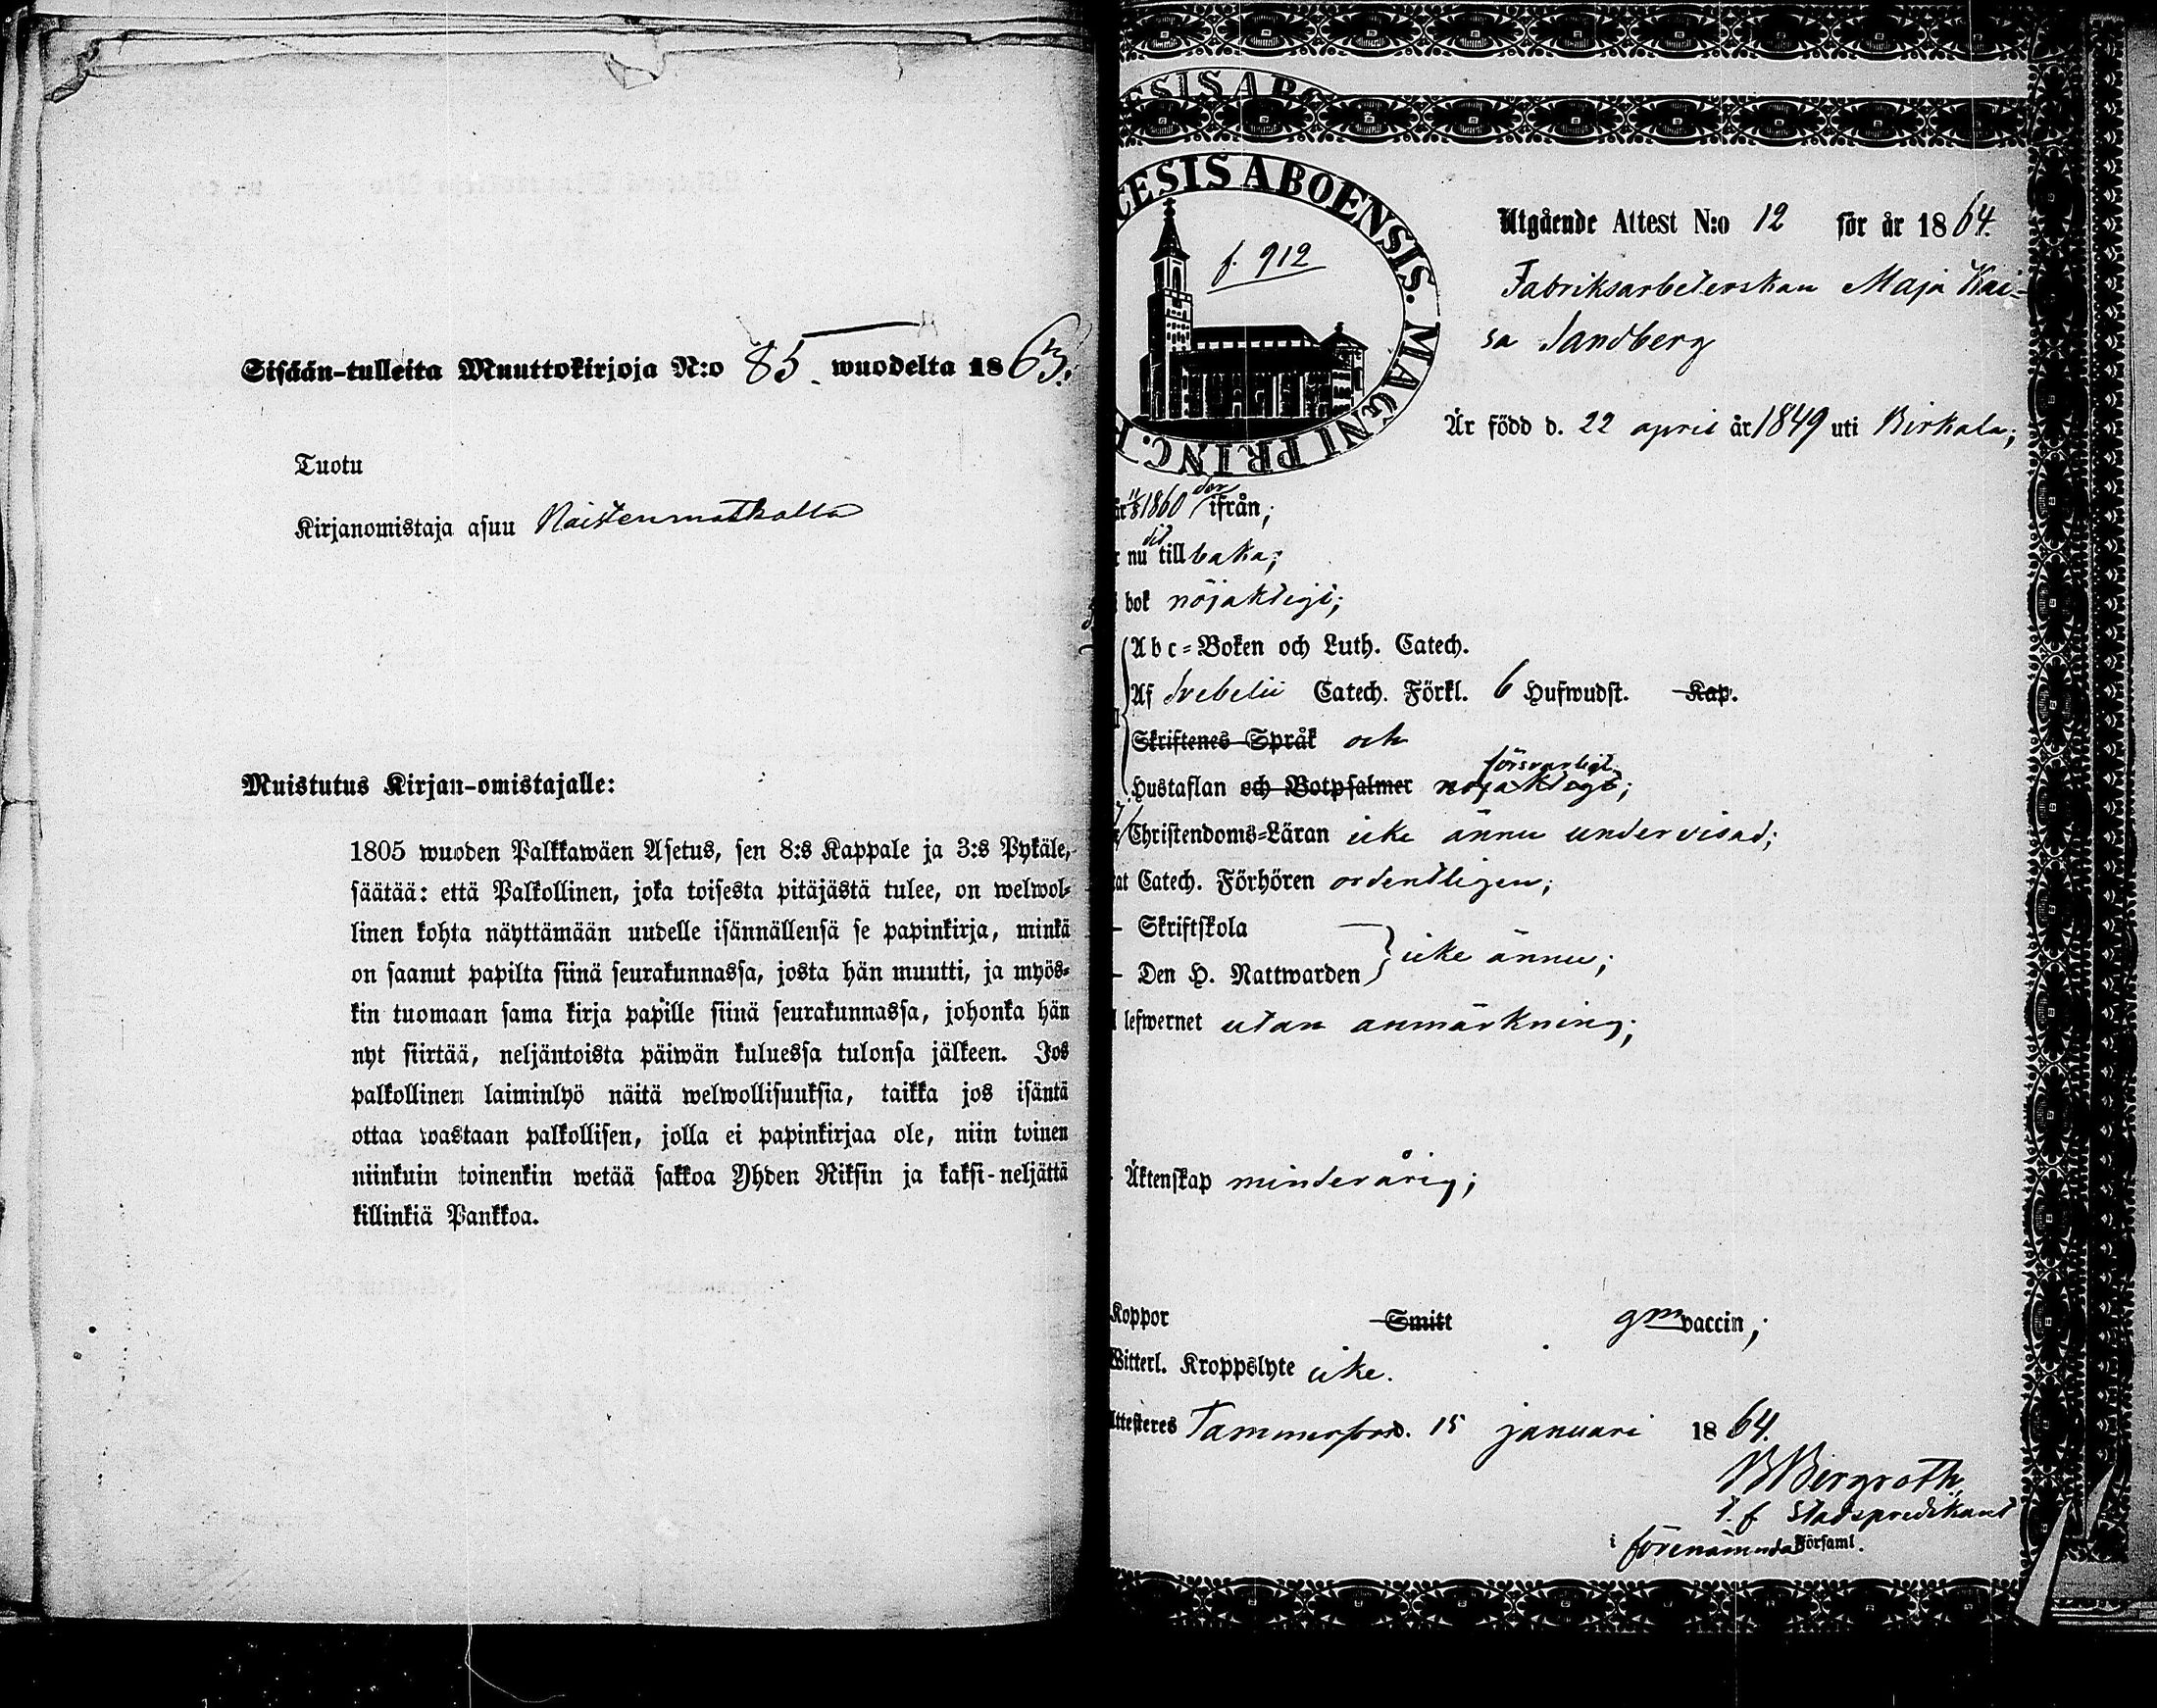 Sisään-tulleita Muuttokirjoja N:o 85 wuodelta 1863.
Tuotu
Kirjanomistaja asuu Naistenmatkalla
Muistutus Kirjan-omistajalle:
1805 wuoden Palkkawäen Asetus, sen 8:s Kappale ja 3:s Pykäle,
säätää: että Palkollinen, joka toisesta pitäjästä tulee, on welwol-
linen kohta näyttämään uudelle isännällensä se papinkirja, minkä
on saanut papilta siinä seurakunnassa, josta hän muutti, ja myös-
kin tuomaan sama kirja papille siinä seurakunnassa, johonka hän
nyt siirtää, neljäntoista päiwän kuluessa tulonsa jälkeen. Jos
palkollinen laiminlyö näitä welwollisuuksia, taikka jos isäntä
ottaa wastaan palkollisen, jolla ei papinkirjaa ole, niin toinen
niinkuin toinenkin wetää sakkoa Yhden Riksin ja kaksi-neljättä
killinkiä Pankkoa.
ESIS ABO
CESIS ABOENSIS. MAGNI PRINC. F
f. 912
Utgående Attest N:o 12 för år 1864.
Fabriksarbeterskan Maja Kai-
sa Sandberg
Är född d. 22 april år 1849 uti Birkala;
1860 der ifrån;
nu dit tillbaka;
bok nöjaktigt;
Abc-Boken och Luth. Catech.
Af Svebelii Catech. Förkl. 6 Hufwudst. Kap.
Skriftenes Språk och
försvarligt
Hustaflan och Botpsalmer nöjaktigt;
Christendoms-Läran icke ännu undervisad;
at Catech. Förhören ordentligen;
Skriftskola
Den H. Nattwarden } icke ännu;
lefwernet utan anmärkning;
Äktenskap minderårig;
Koppor Smitt gm vaccin;
Witterl. Kroppslyte icke.
Attesteres Tammerfors d. 15 januari 1864.
B Bergroth
t. f. Stadspredikant
i förenämnda Församl.